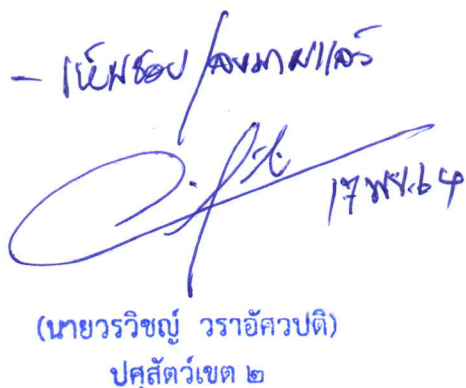 - เห็นชอบ/ลงนามแล้ว
17 พย. 64
(นายวรวิชญ์ วราอัศวปติ)
ปศุสัตว์เขต ๒